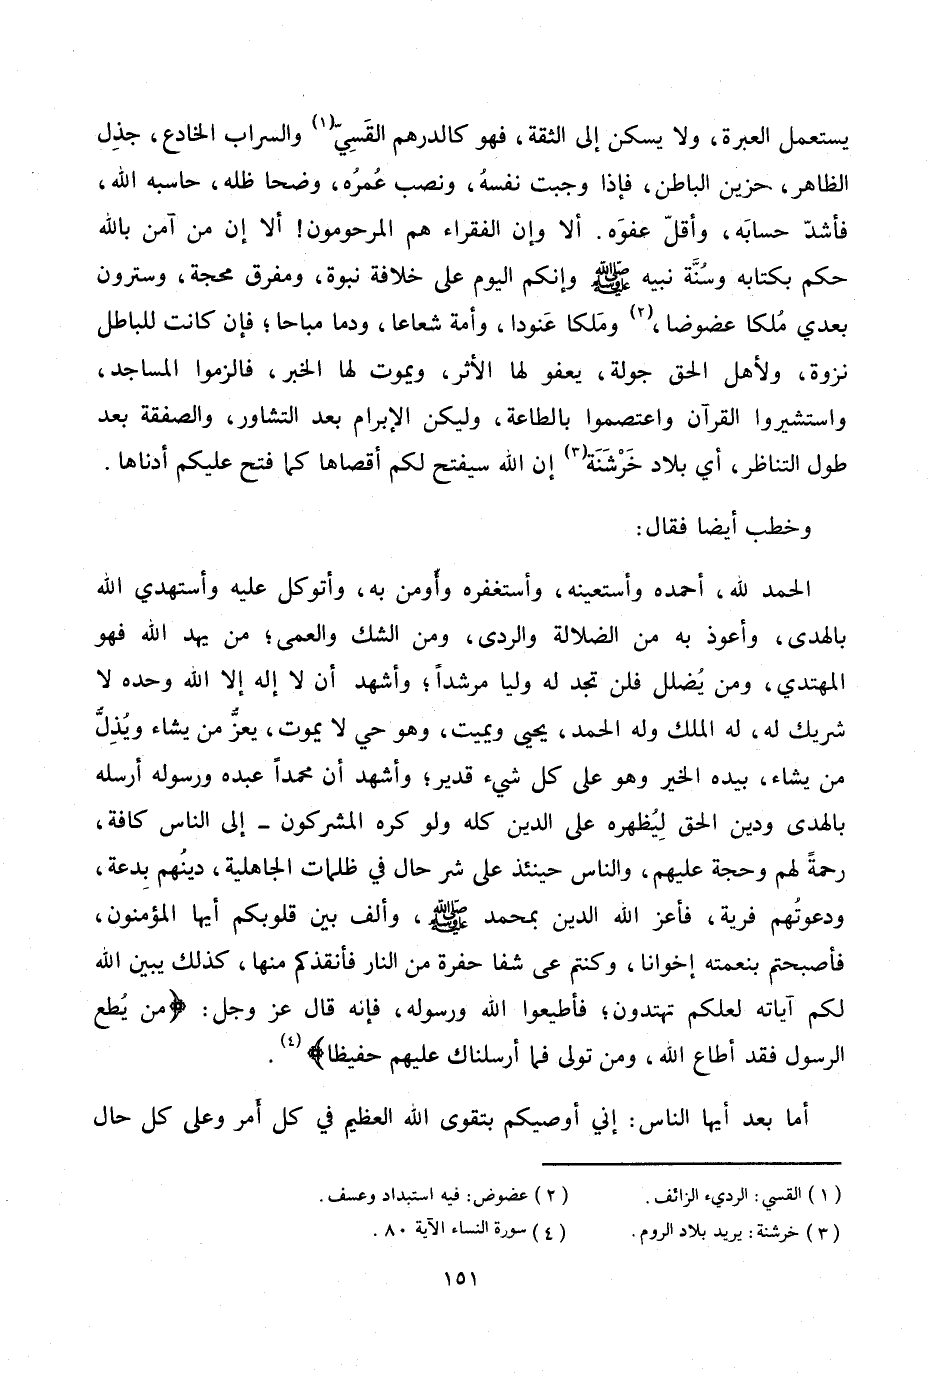 يستعمل العبرة، ولا يسكن إلى الثقة، فهو كالدرهم القَسِيّ(١) والسراب الخادع، جذِل
الظاهر، حزين الباطن، فإذا وجبت نفسهُ، ونصب عُمرُه، وضحا ظله، حاسبه الله،
فأشدّ حسابَه، وأقلّ عفوَه. ألا وإن الفقراء هم المرحومون! ألا إن من آمن بالله
حكم بكتابه وسُنَّة نبيه ﷺ وإنكم اليوم على خلافة نبوة، ومفرق محجة، وسترون
بعدي مُلكا عضوضا،(٢) ومَلكا عَنودا، وأمة شعاعا، ودما مباحا؛ فإن كانت للباطل
نزوة، ولأهل الحق جولة، يعفو لها الأثر، ويموت لها الخبر، فالزموا المساجد،
واستشيروا القرآن واعتصموا بالطاعة، وليكن الإبرام بعد التشاور، والصفقة بعد
طول التناظر، أي بلاد خَرْشَنَة(٣) إن الله سيفتح لكم أقصاها كما فتح عليكم أدناها.
وخطب أيضا فقال:
الحمد لله، أحمده وأستعينه، وأستغفره وأومن به، وأتوكل عليه وأستهدي الله
بالهدى، وأعوذ به من الضلالة والردى، ومن الشك والعمى؛ من يهد الله فهو
المهتدي، ومن يُضلل فلن تجد له وليا مرشداً؛ وأشهد أن لا إله إلا الله وحده لا
شريك له، له الملك وله الحمد، يحيي ويميت، وهو حي لا يموت، يعزُّ من يشاء ويُذِلُّ
من يشاء، بيده الخير وهو على كل شيء قدير؛ وأشهد أن محمداً عبده ورسوله أرسله
بالهدى ودين الحق لِيُظهره على الدين كله ولو كره المشركون ـ إلى الناس كافة،
رحمةً لهم وحجة عليهم، والناس حينئذ على شر حال في ظلمات الجاهلية، دينُهم بِدعة،
ودعوتُهم فرية، فأعز الله الدين بمحمد ﷺ، وألف بين قلوبكم أيها المؤمنون،
فأصبحتم بنعمته إخوانا، وكنتم عى شفا حفرة من النار فأنقذكم منها، كذلك يبين الله
لكم آياته لعلكم تهتدون؛ فأطيعوا الله ورسوله، فإنه قال عز وجل: ﴿من يُطع
الرسول فقد أطاع الله، ومن تولى فما أرسلناك عليهم حفيظا﴾(٤).
أما بعد أيها الناس: إني أوصيكم بتقوى الله العظيم في كل أمر وعلى كل حال
(١) القسي: الرديء الزائف. (٢) عضوض: فيه استبداد وعسف.
(٣) خرشنة: يريد بلاد الروم. (٤) سورة النساء الآية ٨٠.
١٥١